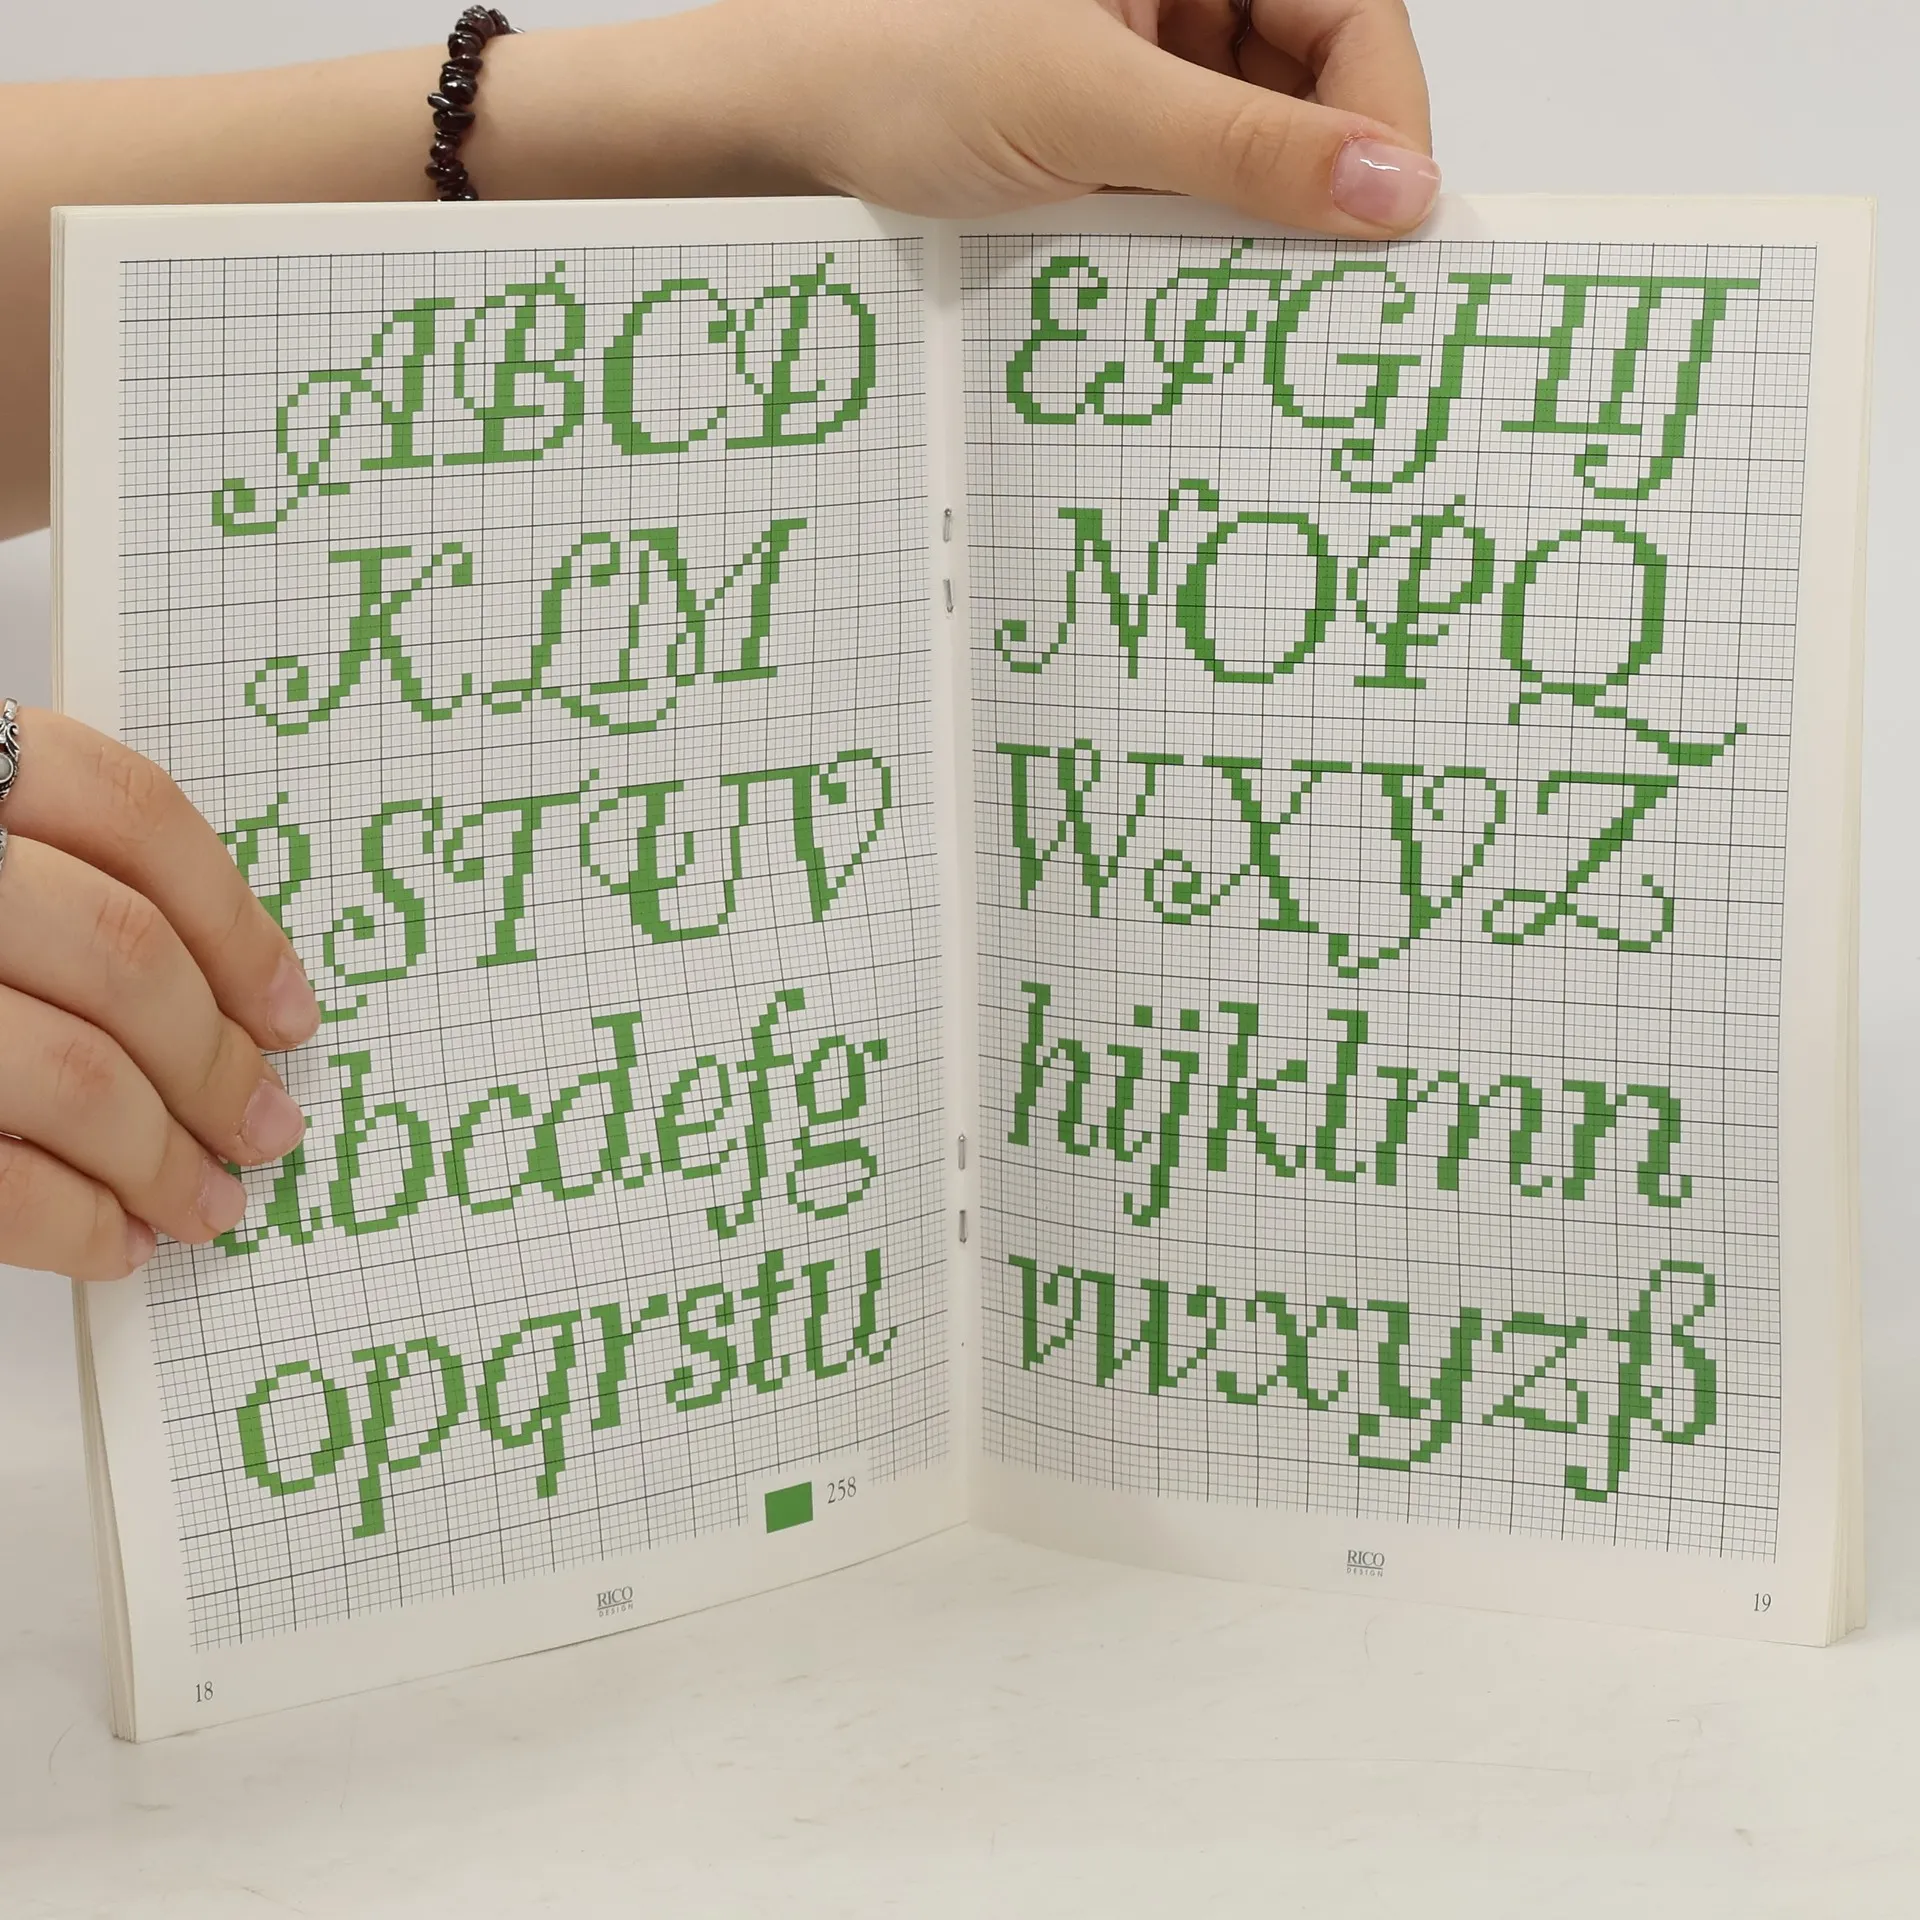 ABCD
KLM
RSTUV
abcdefg
opqrstu
258
RICO
DESIGN
18
EFGHIJ
NOPQ
WXYZ
hijklmn
vwxyzß
RICO
DESIGN
19